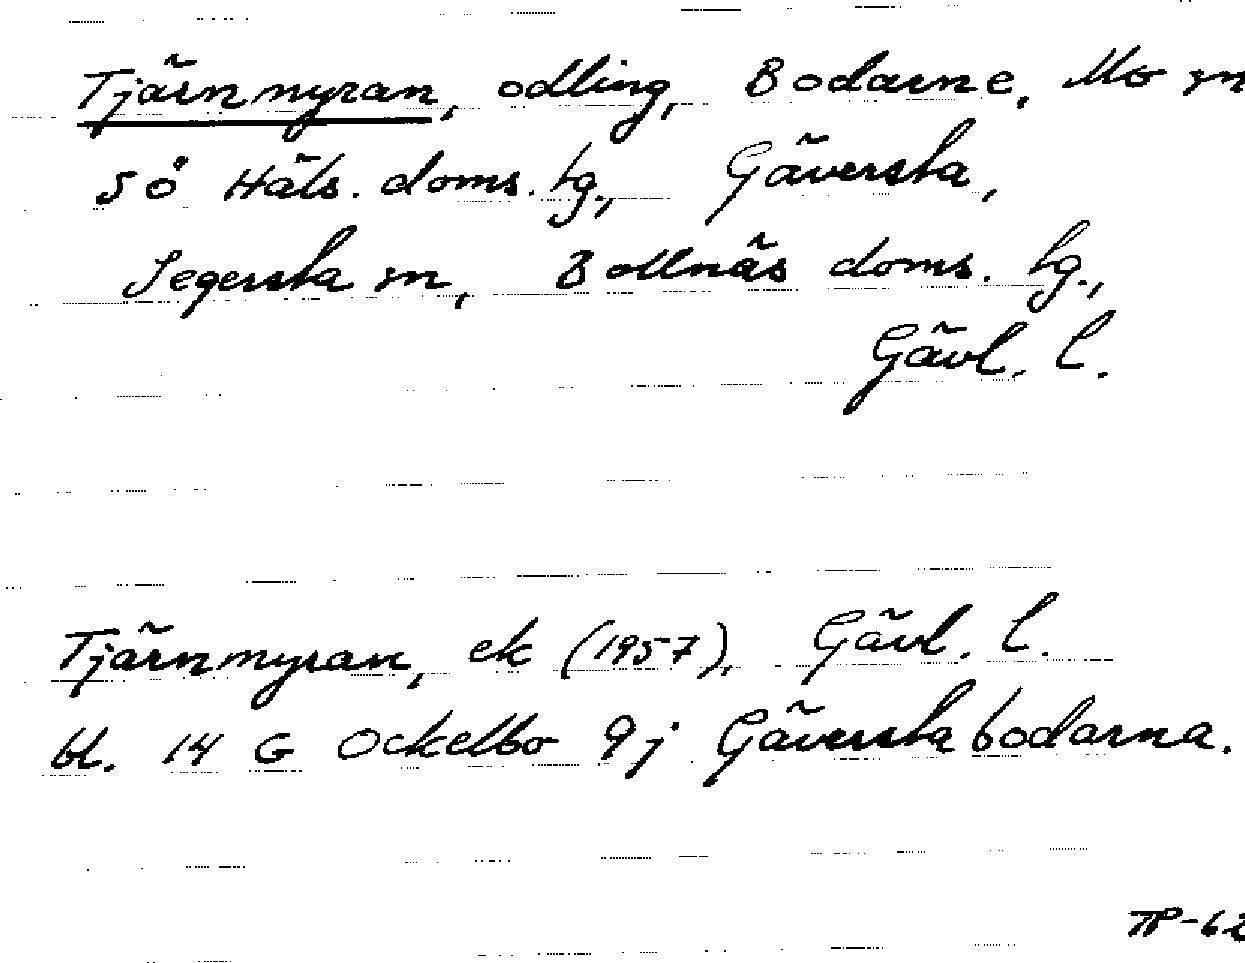 Tjärnmyran, odling, Bodarne, Mo sn
SÖ Häls. doms. hg., Gäversta,
Segersta sn, Bollnäs doms. hg.,
Gävl. l.
Tjärnmyran, ek (1957), Gävl. l.
bl. 14 G Ockelbo 9j Gäverstabodarna.
TP-62